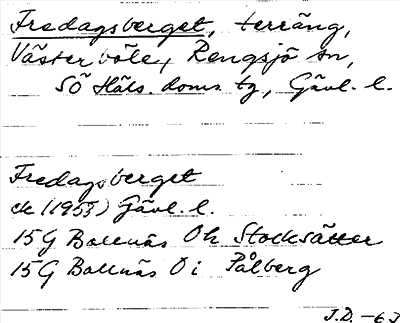 Fredagsberget, terräng,
Västerböle, Rengsjö sn,
SÖ Häls. doms. tg, Gävl. l.
Fredagsberget
ek (1953) Gävl. l.
15G Bollnäs 0h Stocksätter
15G Bollnäs 0i Pålberg
J.D. -63